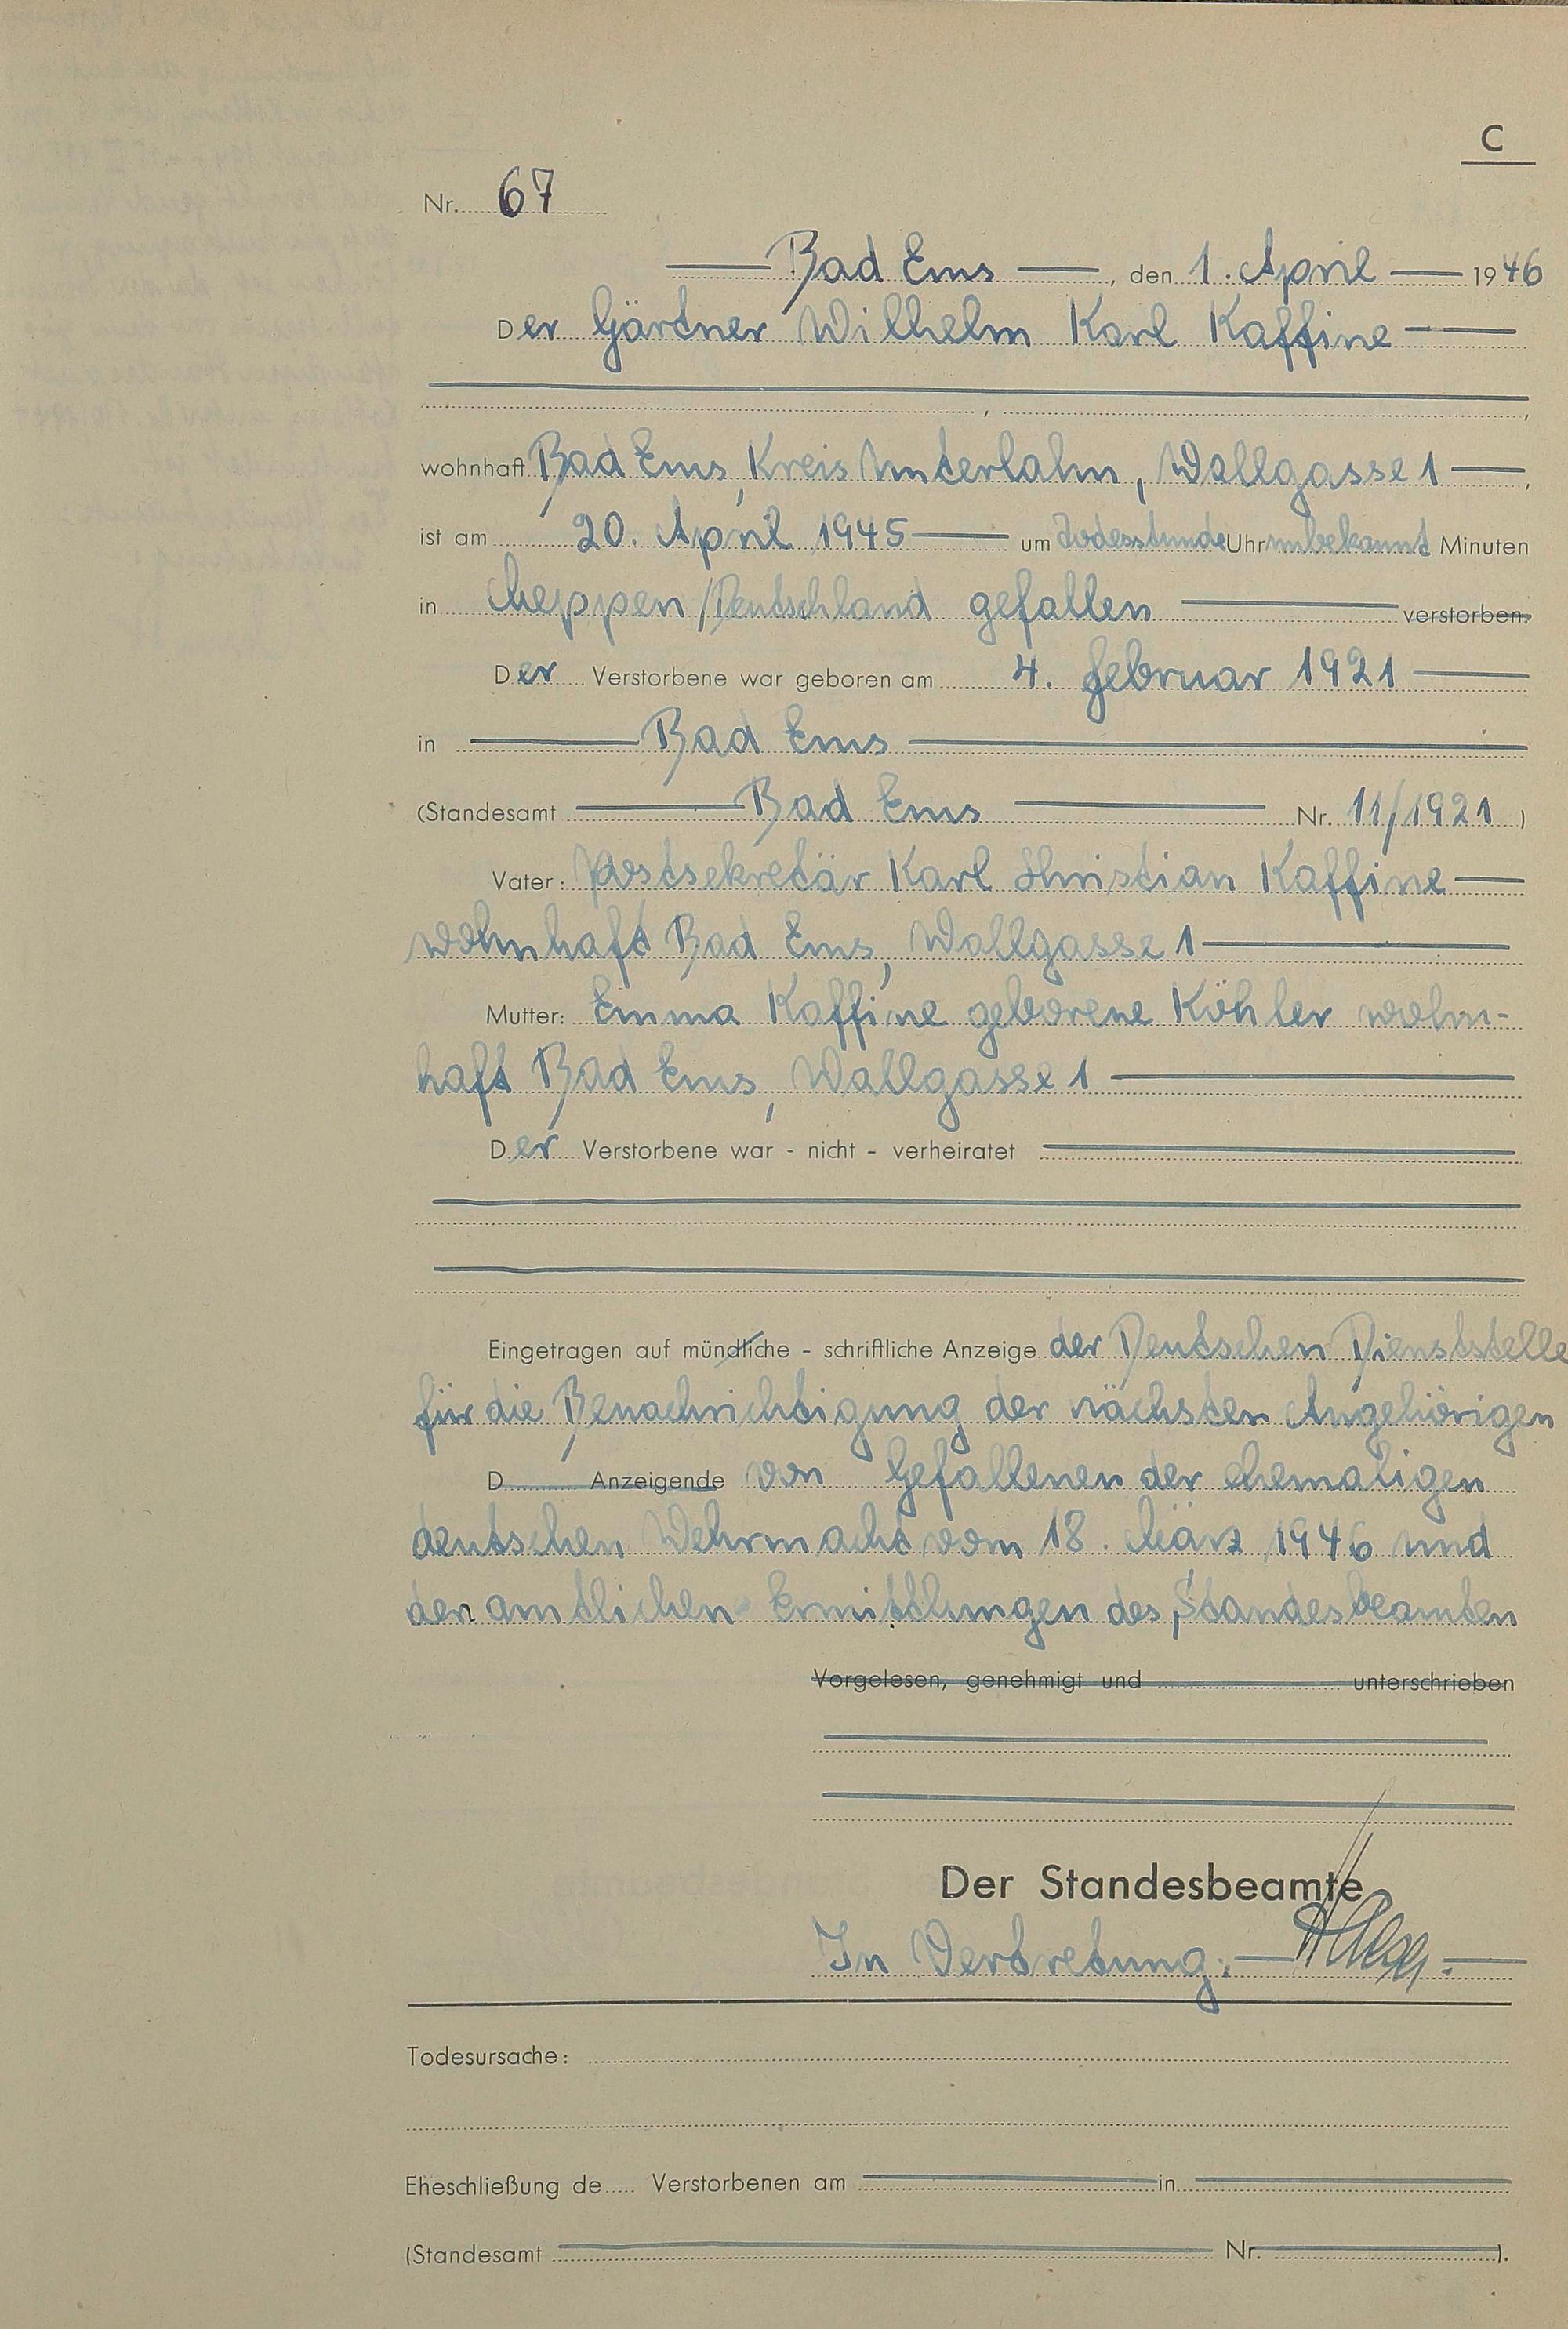 C
Nr. 67
Bad Ems, den 1. April 1946
Der Gärtner Wilhelm Karl Kaffine
wohnhaft Bad Ems, Kreis Unterlahn, Wallgasse 1,
ist am 20. April 1945 um Todesstunde Uhr unbekannt Minuten
in Meppen/Deutschland gefallen verstorben.
Der Verstorbene war geboren am 4. Februar 1921
in Bad Ems
(Standesamt Bad Ems Nr. 11/1921)
Vater: Postsekretär Karl Christian Kaffine
wohnhaft Bad Ems, Wallgasse 1
Mutter: Emma Kaffine geborene Köhler wohn-
haft Bad Ems, Wallgasse 1
Der Verstorbene war - nicht - verheiratet
Eingetragen auf mündliche - schriftliche Anzeige der Deutschen Dienststelle
für die Benachrichtigung der nächsten Angehörigen
D Anzeigende von Gefallenen der ehemaligen
deutschen Wehrmacht vom 18. März 1946 und
den amtlichen Ermittlungen des Standesbeamten
Vorgelesen, genehmigt und unterschrieben
Der Standesbeamte
In Vertretung:
Todesursache:
Eheschließung de Verstorbenen am in
(Standesamt Nr. ).